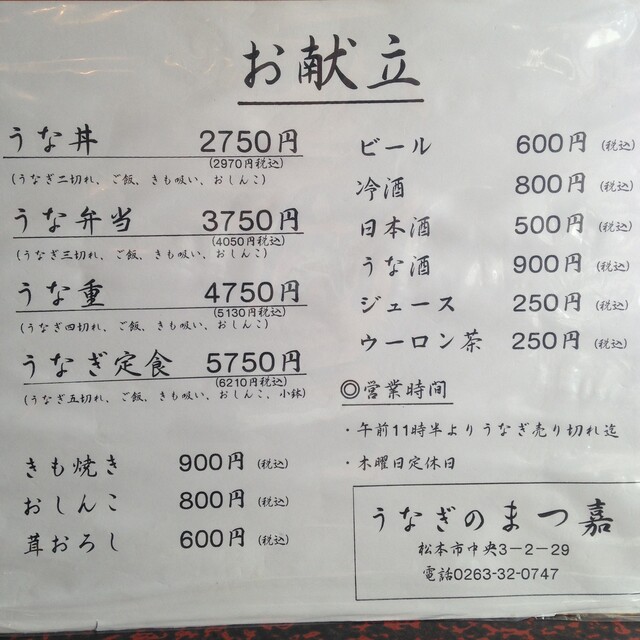 お献立
うな丼 2750円
(2970円税込)
(うなぎ二切れ、ご飯、きも吸い、おしんこ)
うな弁当 3750円
(4050円税込)
(うなぎ三切れ、ご飯、きも吸い、おしんこ)
うな重 4750円
(5130円税込)
(うなぎ四切れ、ご飯、きも吸い、おしんこ)
うなぎ定食 5750円
(6210円税込)
(うなぎ五切れ、ご飯、きも吸い、おしんこ、小鉢)
きも焼き 900円 (税込)
おしんこ 800円 (税込)
茸おろし 600円 (税込)
ビール 600円 (税込)
冷酒 800円 (税込)
日本酒 500円 (税込)
うな酒 900円 (税込)
ジュース 250円 (税込)
ウーロン茶 250円 (税込)
◎営業時間
・午前11時半よりうなぎ売り切れ迄
・木曜日定休日
うなぎのまつ嘉
松本市中央3-2-29
電話0263-32-0747